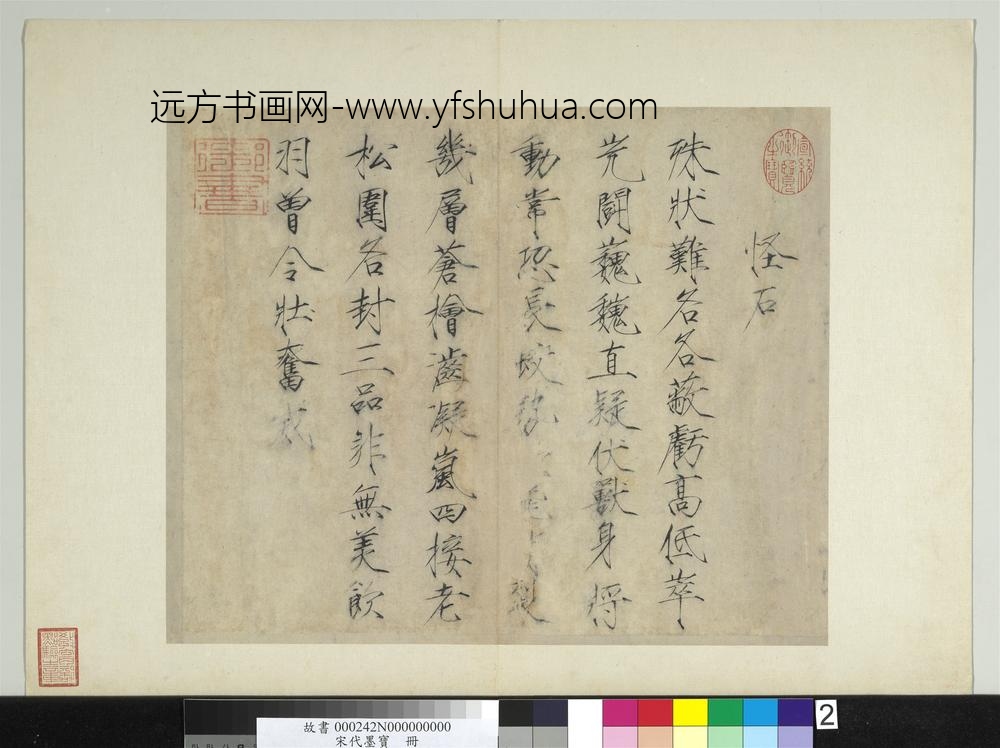 远方书画网-www.yfshuhua.com
怪石
殊狀難名各蔽虧高低萃
屼鬪巍巍直疑伏獸身將
動常恐長蛟勢
幾層蒼檜溜凝嵐四接老
松圍各封三品非無美飲
羽曾令壯奮威
2
故書 000242N000000000
宋代墨寶 冊